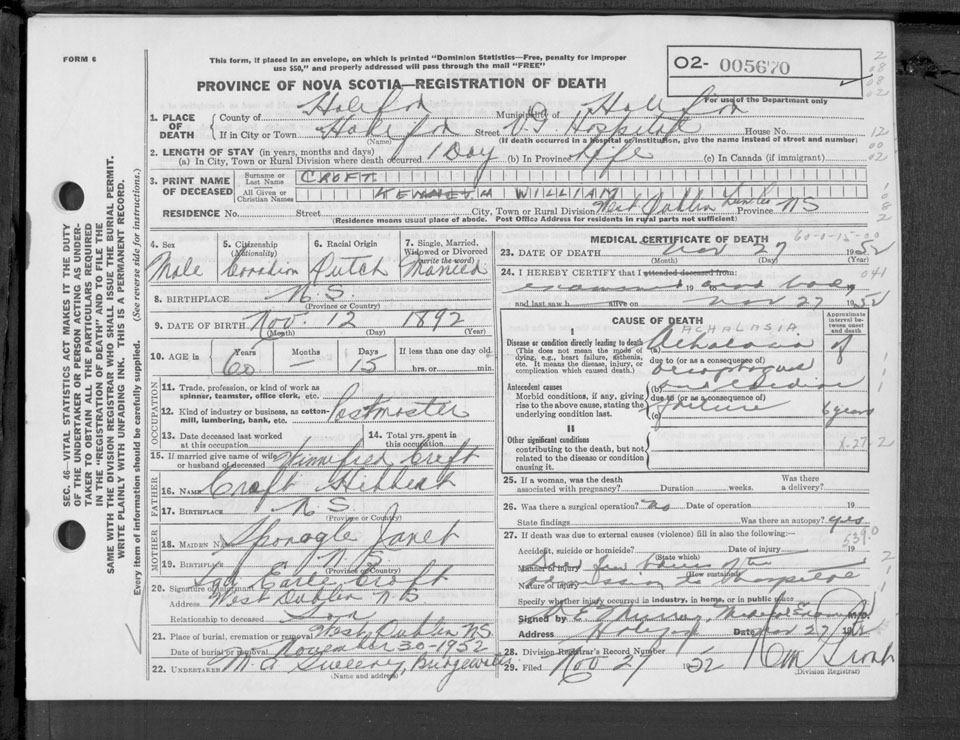 FORM 6
This form, if placed in an envelope, on which is printed "Dominion Statistics—Free, penalty for improper
use $50," and properly addressed will pass through the mail "FREE"
PROVINCE OF NOVA SCOTIA—REGISTRATION OF DEATH
O2- 005670
For use of the Department only
1. PLACE OF DEATH
County of Halifax Municipality of Halifax
If in City or Town Halifax Street V.G. Hospital House No.
(Name) (If death occurred in a hospital or institution, give the name instead of street and number)
2. LENGTH OF STAY (in years, months and days)
(a) In City, Town or Rural Division where death occurred 1 Day (b) In Province Life (c) In Canada (if immigrant)
3. PRINT NAME OF DECEASED
Surname or Last Name CROFT
All Given or Christian Names KENNETH WILLIAM
RESIDENCE No. Street City, Town or Rural Division West Dublin Lun. Co. Province NS
(Residence means usual place of abode. Post Office Address for residents in rural parts not sufficient)
4. Sex Male
5. Citizenship (Nationality) Canadian
6. Racial Origin Dutch
7. Single, Married, Widowed or Divorced (write the word) Married
8. BIRTHPLACE N.S.
(Province or Country)
9. DATE OF BIRTH Nov. 12 1892
(Month) (Day) (Year)
10. AGE in Years 60 Months — Days 15 If less than one day old
hrs. or min.
OCCUPATION
11. Trade, profession or kind of work as
spinner, teamster, office clerk, etc.
12. Kind of industry or business, as cotton-
mill, lumbering, bank, etc. Postmaster
13. Date deceased last worked
at this occupation
14. Total yrs. spent in
this occupation
15. If married give name of wife
or husband of deceased Winnifred Croft
FATHER
16. NAME Croft
17. BIRTHPLACE N.S.
(Province or Country)
MOTHER
18. MAIDEN NAME Sponagle Janet
19. BIRTHPLACE N.S.
(Province or Country)
20. Signature of informant Sgd Earle Croft
Address West Dublin N.S.
Relationship to deceased Son
21. Place of burial, cremation or removal West Dublin N.S.
Date of burial or removal November 30-1952
22. UNDERTAKER M A Sweeney, Bridgewater
(Name and address)
MEDICAL CERTIFICATE OF DEATH
60-0-15-00
23. DATE OF DEATH Nov 27 1952
(Month) (Day) (Year)
24. I HEREBY CERTIFY that I attended deceased from:
041
examined 19 dead body
and last saw h alive on Nov 27 1952
CAUSE OF DEATH
Approximate interval between onset and death
I
Disease or condition directly leading to death
(This does not mean the mode of
dying, e.g., heart failure, asthenia,
etc. It means the disease, injury, or
complication which caused death.)
ACHALASIA
(a) Achalasia of
due to (or as a consequence of)
oesophagus
Antecedent causes
Morbid conditions, if any, giving
rise to the above cause, stating the
underlying condition last.
(b) and cardiac
due to (or as a consequence of)
(c) failure 6 years
II
Other significant conditions
contributing to the death, but not
related to the disease or condition
causing it.
25. If a woman, was the death
associated with pregnancy? Duration weeks. Was there
a delivery?
26. Was there a surgical operation? No Date of operation 19
State findings Was there an autopsy? yes
5390
27. If death was due to external causes (violence) fill in also the following:—
Accident, suicide or homicide? Date of injury 19
(State which)
Manner of injury Died few hours after
(How sustained)
Nature of injury admission to hospital
Specify whether injury occurred in industry, in home, or in public place
Signed by Medical Examiner
Address Halifax Date Nov 27 1952
28. Division Registrar's Record Number
29. Filed Nov 27 1952
(Division Registrar)
SEC. 46—VITAL STATISTICS ACT MAKES IT THE DUTY
OF THE UNDERTAKER OR PERSON ACTING AS UNDER-
TAKER TO OBTAIN ALL THE PARTICULARS REQUIRED
IN THE "REGISTRATION OF DEATH" AND TO FILE THE
SAME WITH THE DIVISION REGISTRAR WHO SHALL ISSUE THE BURIAL PERMIT.
WRITE PLAINLY WITH UNFADING INK. THIS IS A PERMANENT RECORD.
Every item of information should be carefully supplied. (See reverse side for instructions.)